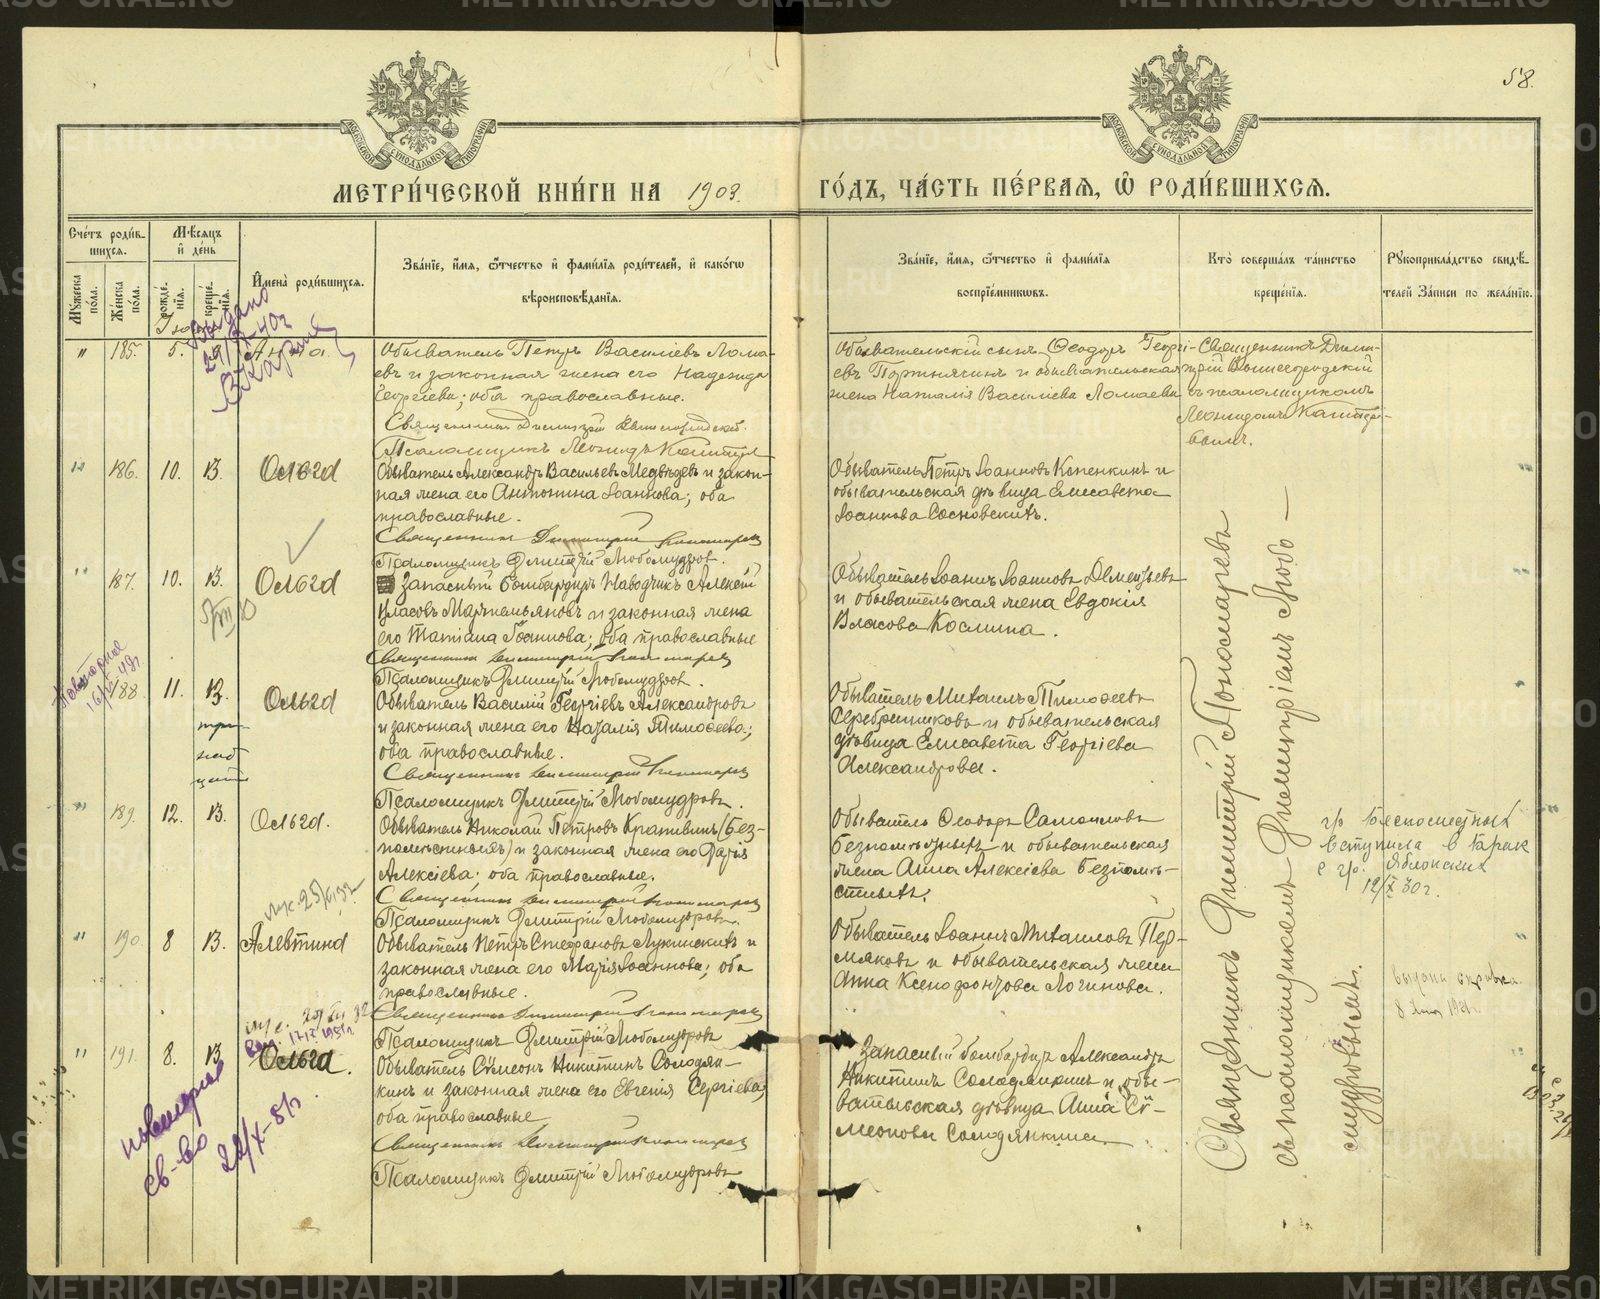 58.
МЕТРИ́ЧЕСКОЙ КНИ́ГИ НА 1903.
ГО́ДЪ, ЧА́СТЬ ПЕ́РВАЯ, Ѡ РОДИ́ВШИХСЯ.
Сче́тъ роди́в-
шихся.
Му́жеска по́ла.
Же́нска по́ла.
Мѣсяцъ
и де́нь
рожде́-
нія.
креще́-
нія.
Имена̀ роди́вшихся.
Зва́ніе, и́мя, о́тчество и фами́лія роди́телей, и како́гѡ
вѣроисповѣ́данія.
Зва́ніе, и́мя, о́тчество и фами́лія
воспріе́мниковъ.
Кто̀ соверша́лъ та́инство
креще́нія.
Рукоприкла́дство свидѣ́-
телей за́писи по жела́нію.
" 185. 5.
Обыватель Петръ Василіевъ Лома-
евъ и законная жена его Надежда
Георгіева; оба православные.
Священникъ Димитрій
Псаломщикъ Леонидъ
Обывательскій сынъ Ѳеодоръ Георгі-
евъ и обывательская
жена Наталія Васильева Ломаева
Священникъ Дими-
трій Вышегородскій
съ псаломщикомъ
Леонидомъ
" 186. 10. 13. Ольга
Обыватель Александръ Васильевъ Медвѣдевъ и закон-
ная жена его Антонина Іоаннова; оба
православные.
Священникъ Димитрій Пономаревъ
Псаломщикъ Дмитрій Любомудровъ.
Обыватель Петръ Іоанновъ Копенкинъ и
обывательская дѣвица Елисавета
Іоаннова Сосновскихъ.
" 187. 10. 13. Ольга
Запасный бомбардиръ наводчикъ Алексѣй
Власовъ Мартемьяновъ и законная жена
его Татіана Іоаннова; оба православные
Священникъ Димитрій Пономаревъ
Псаломщикъ Дмитрій Любомудровъ.
Обыватель Іоаннъ Іоанновъ Дементьевъ
и обывательская жена Евдокія
Власова Космина.
188. 11. 13. Ольга
три
над
цать
Обыватель Василій Георгіевъ Александровъ
и законная жена его Наталія Тимоѳеева;
оба православные.
Священникъ Димитрій Пономаревъ
Псаломщикъ Дмитрій Любомудровъ.
Обыватель Михаилъ Тимоѳеевъ
Серебренниковъ и обывательская
дѣвица Елисавета Георгіева
Александрова.
" 189. 12. 13. Ольга.
Обыватель Николай Петровъ Крапивинъ (Без-
помѣстныхъ) и законная жена его Марія
Алексіева; оба православные.
Священникъ Димитрій Пономаревъ
Псаломщикъ Дмитрій Любомудровъ.
Обыватель Ѳеодоръ Самоиловъ
Безпомѣстныхъ и обывательская
жена Анна Алексіева Безпомѣ-
стныхъ.
гр Беспоместных
вступила в брак
с гр. Яблонских
12/X 30 г.
" 190. 8 13. Алевтина
Обыватель Петръ Стефановъ Лукинскихъ и
законная жена его Марія Іоаннова; оба
православные.
Священникъ Димитрій Пономаревъ
Псаломщикъ Дмитрій Любомудровъ
Обыватель Іоаннъ Михаиловъ Пер-
мяковъ и обывательская жена
Анна Ксенофонтова Логинова.
выдана справка
" 191. 8. 13 Ольга.
Обыватель Сѵмеонъ Никитинъ Солодян-
кинъ и законная жена его Евгенія Сергіева;
оба православные
Священникъ Димитрій Пономаревъ
Псаломщикъ Дмитрій Любомудровъ
Запасный бомбардиръ Александръ
Никитинъ Солодянкинъ и обы-
вательская дѣвица Анна Сѵ-
меонова Солодянкина
Священникъ Димитрій Пономаревъ
съ псаломщикомъ Димитріемъ Любо-
мудровымъ.
Выдано
Повторное
повторное
св-во
22/X-51г.
METRIKI.GASO-URAL.RU